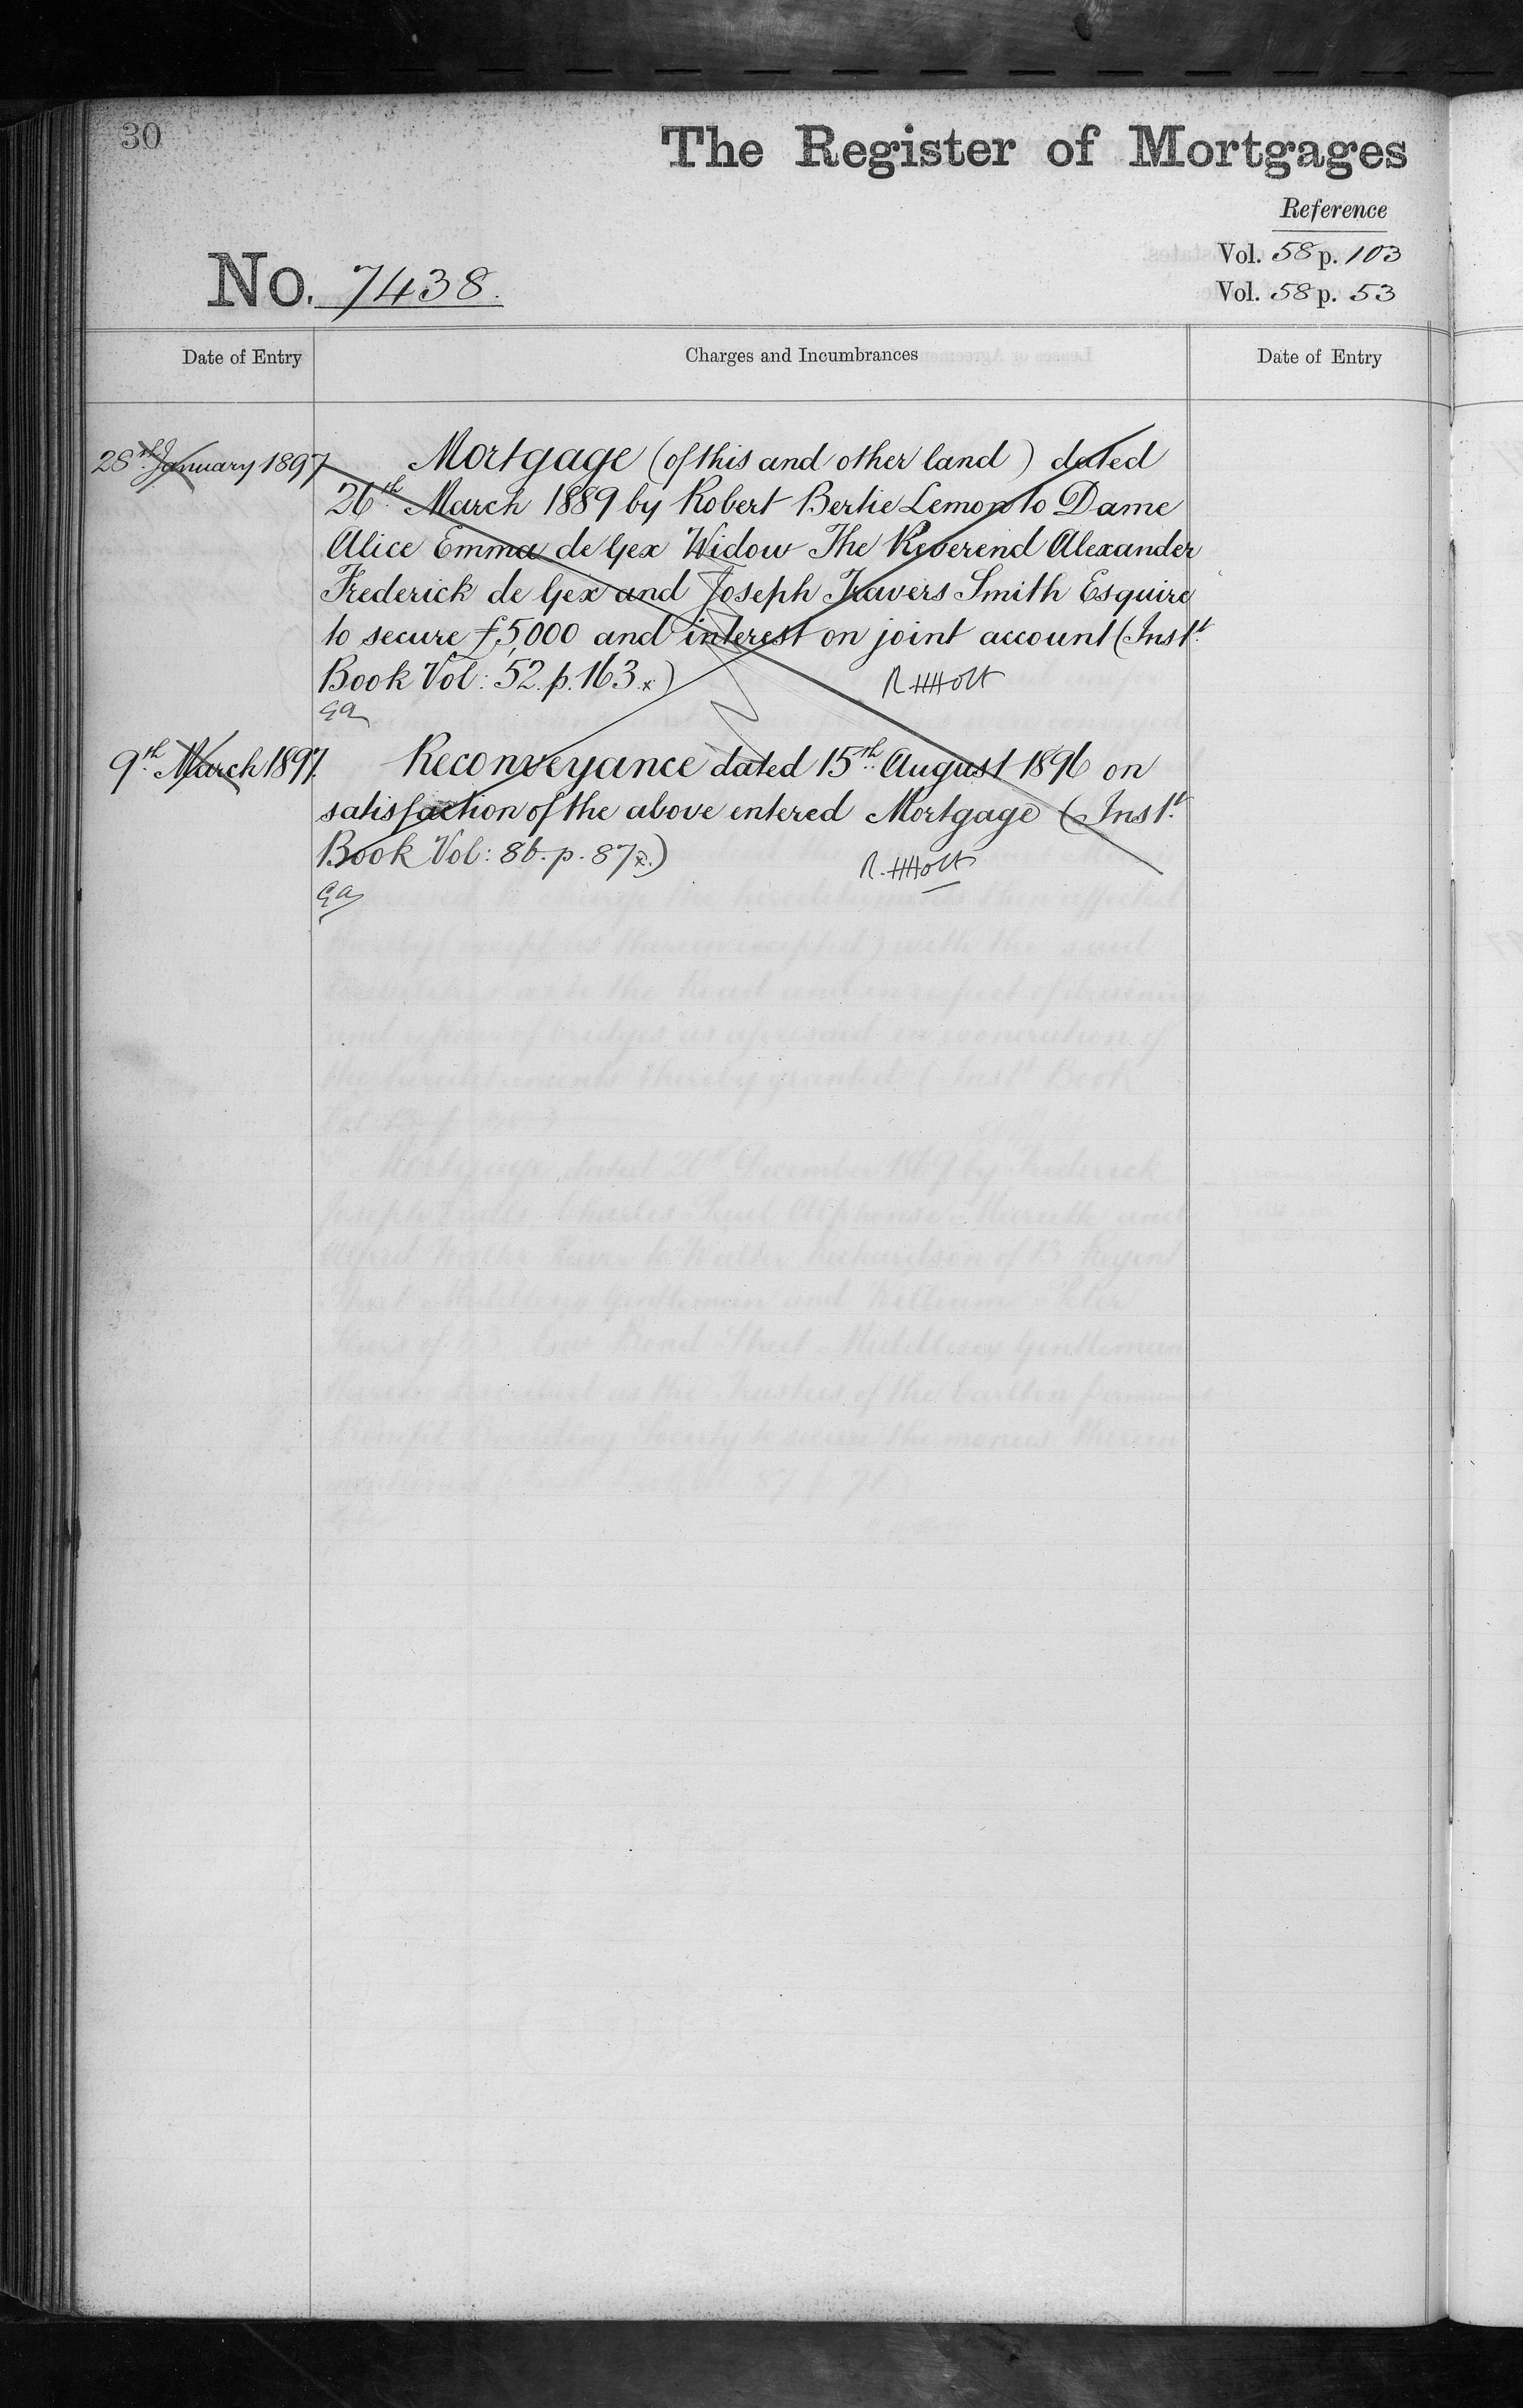 30
The Register of Mortgages
Reference
Vol. 58 p. 103
No. 7438.
Vol. 58 p. 53
Date of Entry
Charges and Incumbrances
Date of Entry
28th January 1897
Mortgage (of this and other land) dated
26th March 1889 by Robert Bertie Lemon to Dame
Alice Emma de Gex Widow The Reverend Alexander
Frederick de Gex and Joseph Travers Smith Esquire
to secure £5,000 and interest on joint account (Instt
Book Vol: 52. p. 163.x)
R.HHolt
Ga
9th March 1897.
Reconveyance dated 15th August 1896 on
satisfaction of the above entered Mortgage (Instt
Book Vol: 86. p. 87x.)
R.HHolt
Ga